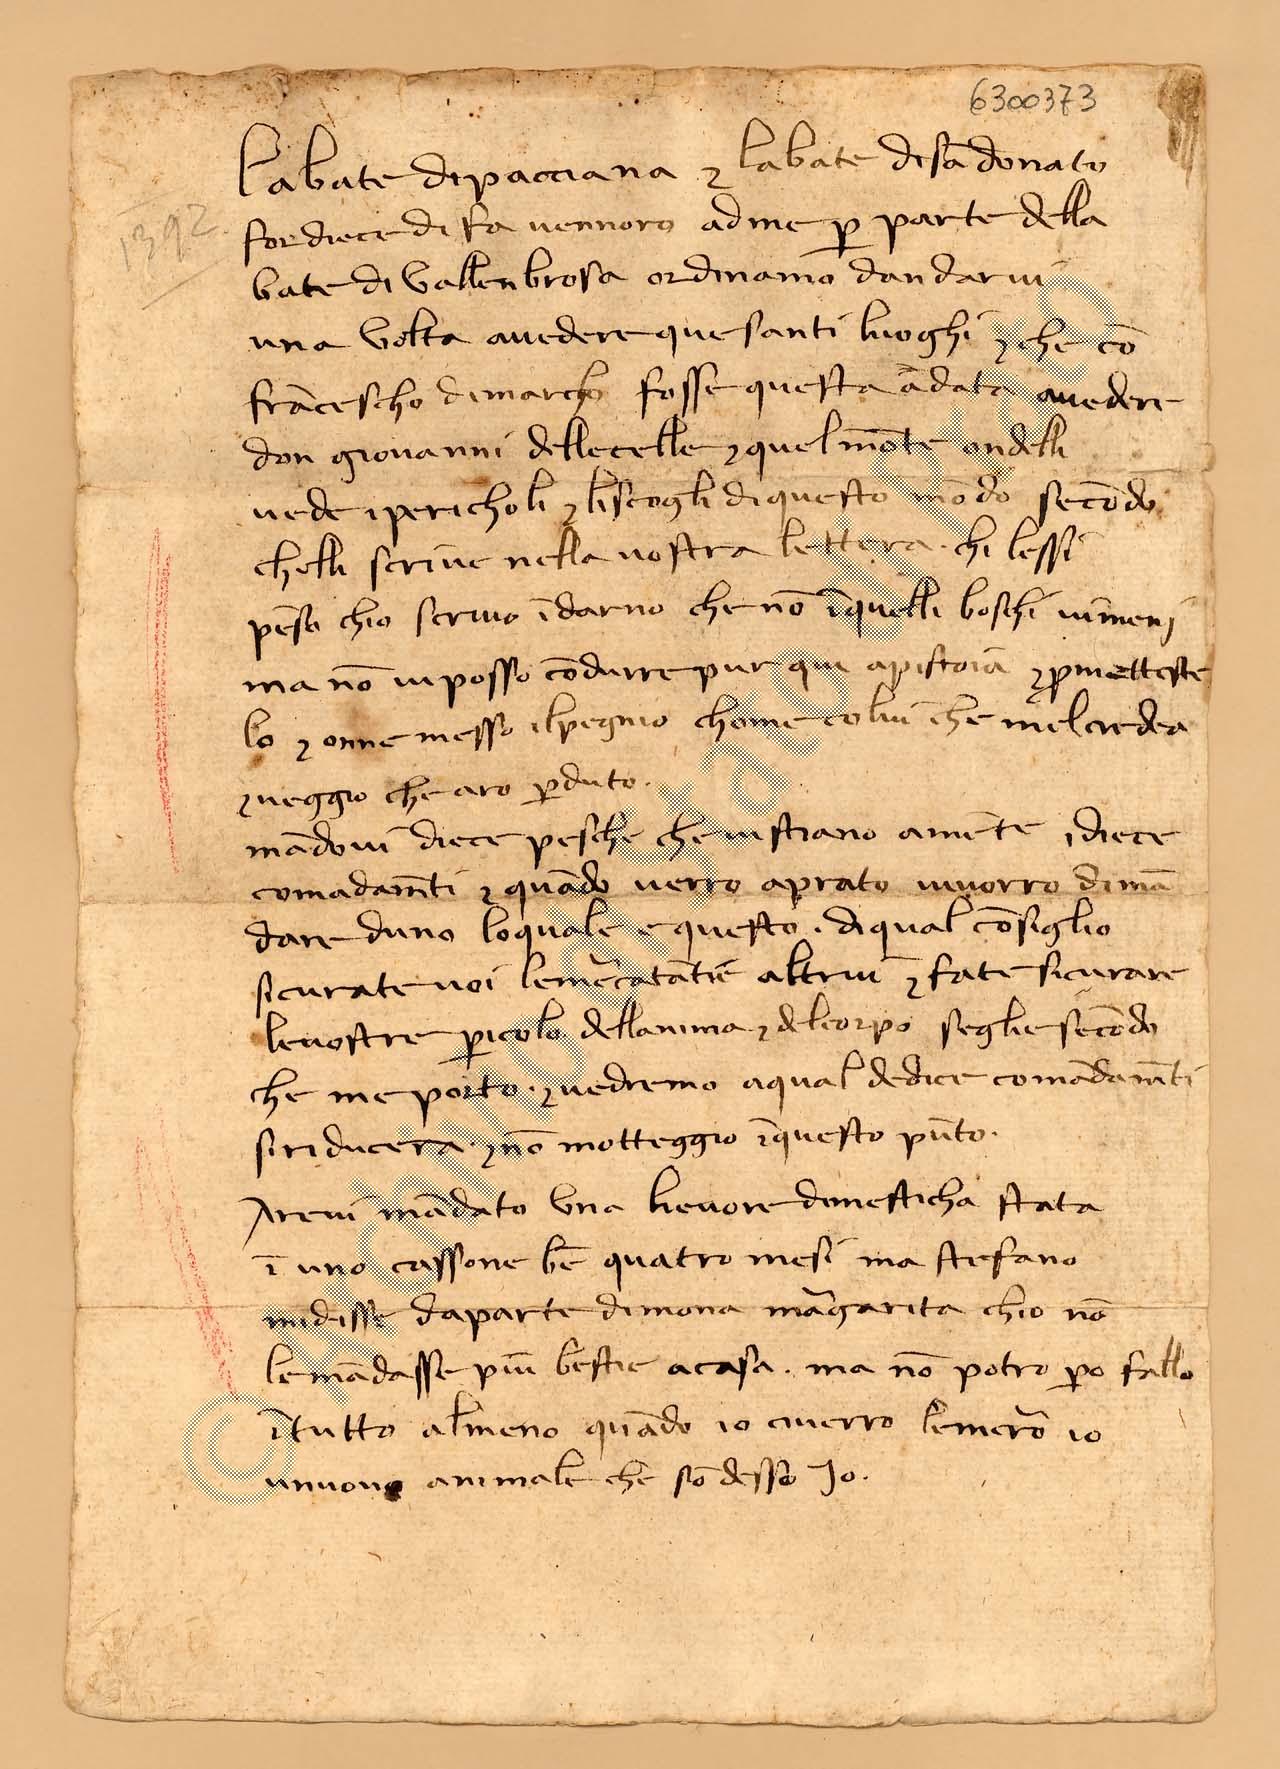 6300373
1392
labate dipacciana ⁊ labate disã donato
for diece di fa vennoro adme p̱ parte della
bate di vallenbrosa ordinamo dandarvi
una volta avedere que santi luoghi ⁊ che cõ
frãcescho dimarcho fosse questa ãdata avedere
don giovanni dellecelle ⁊ quel mõte ondelli
vede i pericholi ⁊ li scogli di questo mõdo secõdo
chelli scrive nella vostra lettera. chi lessi
pẽso chio scrivo ĩdarno che nõ ĩ quelli boschi vimeni
ma nõ vi posso cõdurre pur qui apistoia ⁊ p̱metteste
lo ⁊ onne messo ilpegnio chome colui che melcredea
⁊ veggio che aro p̱duto.
mãdovi diece pesche che vi stiano amẽte i diece
comãdamẽti ⁊ quãdo verro aprato vivorro dimã
dare duno loquale e questo. di qual cõsiglio
sicurate voi lemercatãtie altrui ⁊ fate sicurare
levostre p̱icolo dellanima ⁊ delcorpo seglie secõdo
che me porto. ⁊ vedremo aqual dedice comãdamẽti
si riducera ⁊ nõ motteggio ĩ questo pũto.
Arevi mãdato una lievore dimesticha stata
ĩ uno cassone bẽ quatro mesi ma stefano
midisse daparte dimona margarita chio nõ
lemãdasse piu bestie acasa. ma nõ potro p̱o fallo
ĩ tutto almeno quãdo io civerro lemerro io
un animale che sõ desso Io.